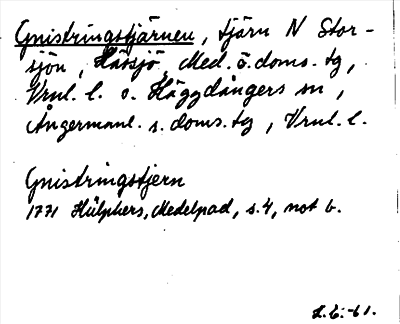 Gnistringstjärnen, tjärn N Stor-
sjön, Hässjö, Med. ö. doms. tg,
Vrnl. l. o. Häggdångers sn,
Ångermanl. s. doms. tg, Vrnl. l.
Gnistringstjern
1771 Hülphers, Medelpad, s. 4, not b.